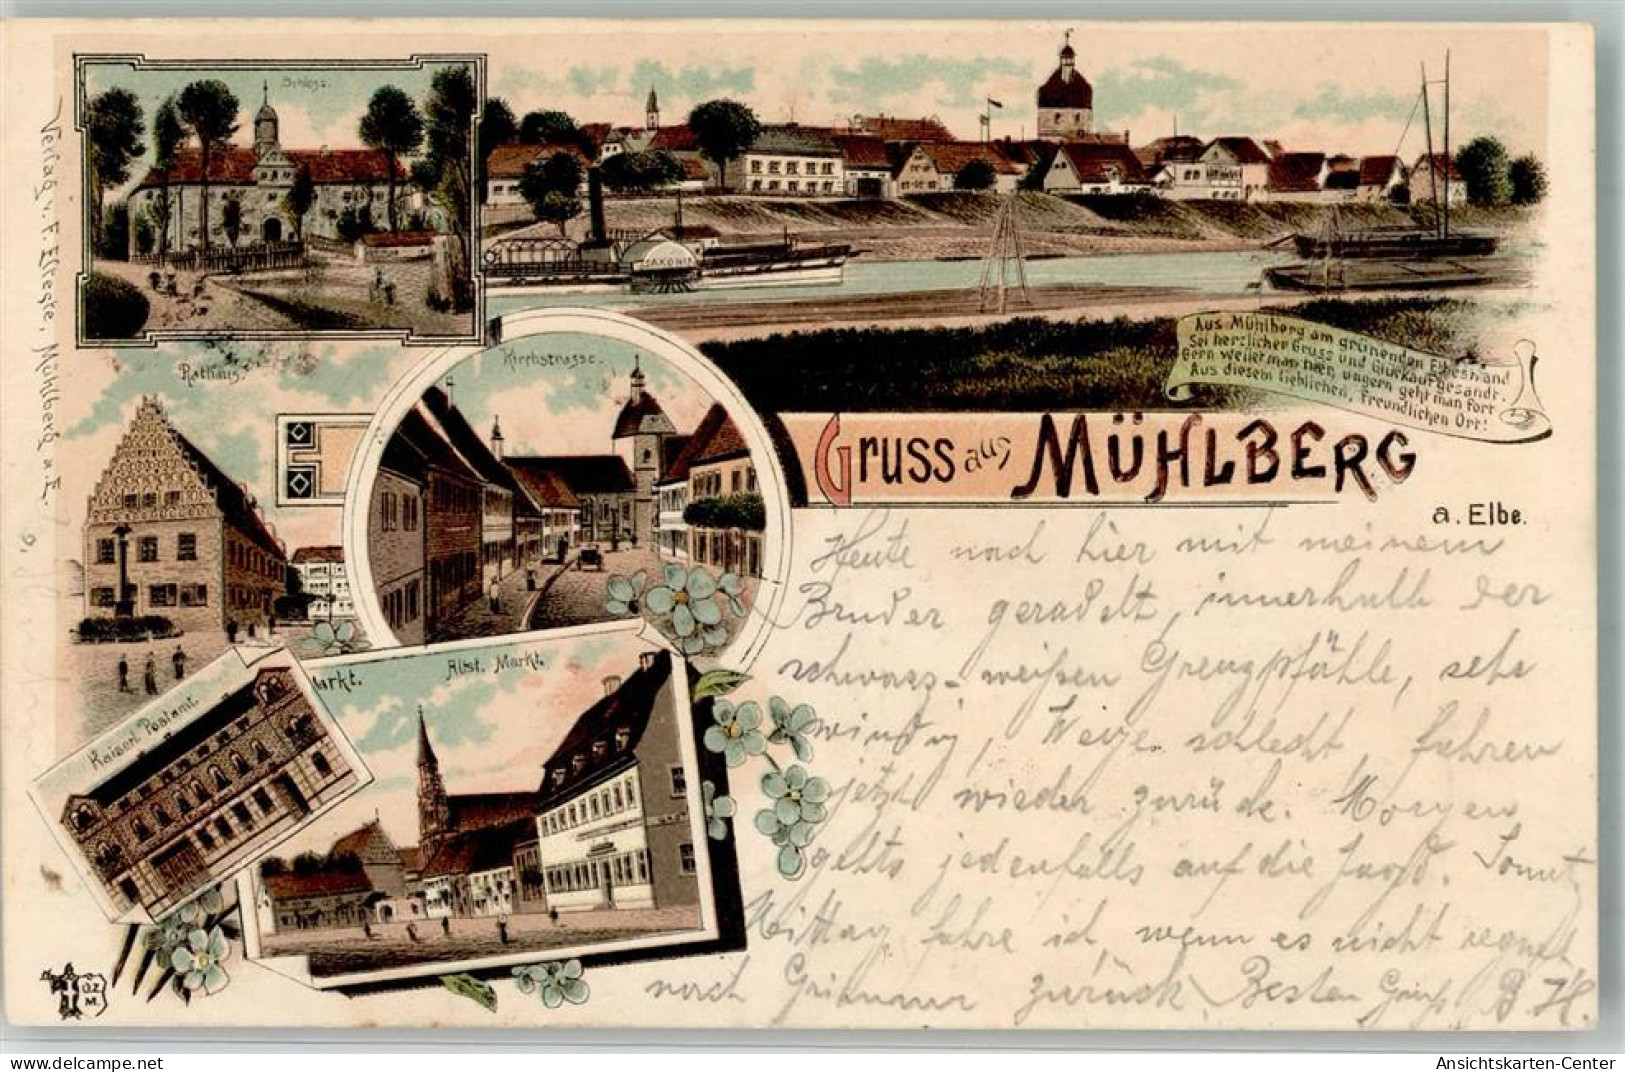 Schloss.
Aus Mühlberg am grünenden Elbestrand
Sei herzlicher Gruss und Glückauf gesandt.
Gern weilet man hier, ungern geht man fort
Aus diesem lieblichen, freundlichen Ort!
SAXONIA
Rathaus.
Kirchstrasse.
Gruss aus MÜHLBERG
a. Elbe.
Verlag v. F. Elteste, Mühlberg a. E.
Kaiserl. Postamt.
Markt.
Altst. Markt.
O.Z.
M.
Heute nach hier mit meinem
Bruder geradelt, innerhalb der
schwarz-weißen Grenzpfähle, sehr
windig, Wege schlecht, fahren
jetzt wieder zurück. Morgen
gehts jedenfalls auf die Jagd. Sonnt.
Mittag fahre ich, wenn es nicht regnet
nach Grimma zurück. Besten Gruß B H.
Ansichtskarten-Center
delcampe.net